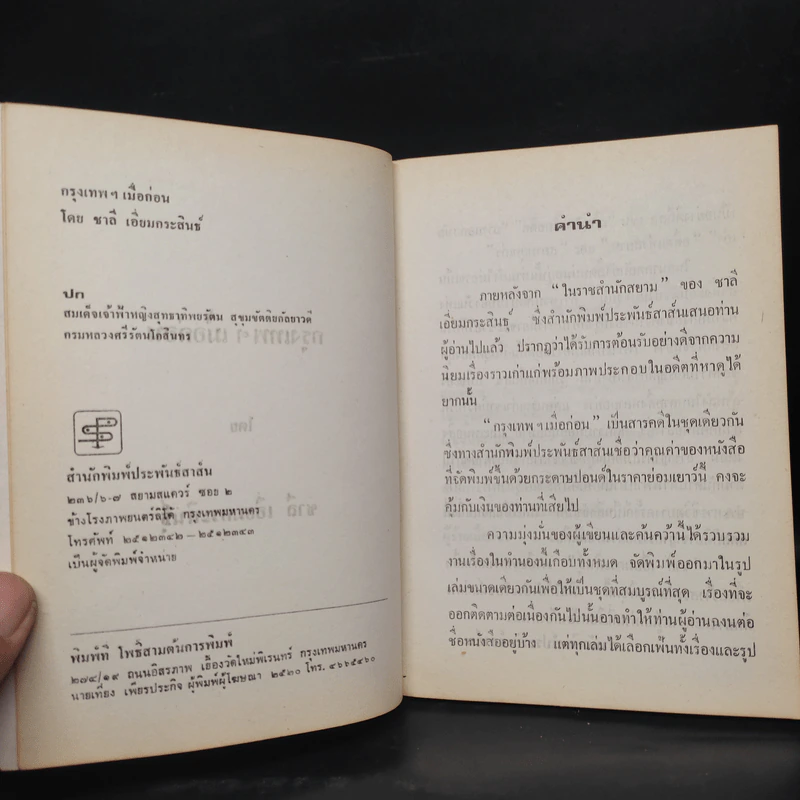 กรุงเทพ ฯ เมื่อก่อน
โดย ชาลี เอี่ยมกระสินธุ์
ปก
สมเด็จเจ้าฟ้าหญิงสุทธาทิพยรัตน สุขุมขัตติยกัลยาวดี
กรมหลวงศรีรัตนโกสินทร
สำนักพิมพ์ประพันธ์สาส์น
๒๓๖/๖-๗ สยามสแควร์ ซอย ๒
ข้างโรงภาพยนตร์ลิโด้ กรุงเทพมหานคร
โทรศัพท์ ๒๕๑๒๓๔๒-๒๕๑๒๓๔๓
เป็นผู้จัดพิมพ์จำหน่าย
พิมพ์ที่ โพธิ์สามต้นการพิมพ์
๒๗๔/๑๙ ถนนอิสรภาพ เยื้องวัดใหม่พิเรนทร์ กรุงเทพมหานคร
นายเที่ยง เพียรประกิจ ผู้พิมพ์ผู้โฆษณา ๒๕๒๐ โทร. ๔๖๖๕๔๖๐
คำนำ
ภายหลังจาก "ในราชสำนักสยาม" ของ ชาลี
เอี่ยมกระสินธุ์ ซึ่งสำนักพิมพ์ประพันธ์สาส์นเสนอท่าน
ผู้อ่านไปแล้ว ปรากฏว่าได้รับการต้อนรับอย่างดีจากความ
นิยมเรื่องราวเก่าแก่พร้อมภาพประกอบในอดีตที่หาดูได้
ยากนั้น
"กรุงเทพ ฯ เมื่อก่อน" เป็นสารคดีในชุดเดียวกัน
ซึ่งทางสำนักพิมพ์ประพันธ์สาส์นเชื่อว่าคุณค่าของหนังสือ
ที่จัดพิมพ์ขึ้นด้วยกระดาษปอนด์ในราคาย่อมเยาว์นี้ คงจะ
คุ้มกับเงินของท่านที่เสียไป
ความมุ่งมั่นของผู้เขียนและค้นคว้านี้ได้รวบรวม
งานเรื่องในทำนองนี้เกือบทั้งหมด จัดพิมพ์ออกมาในรูป
เล่มขนาดเดียวกันเพื่อให้เป็นชุดที่สมบูรณ์ที่สุด เรื่องที่จะ
ออกติดตามต่อเนื่องกันไปนั้นอาจทำให้ท่านผู้อ่านฉงนต่อ
ชื่อหนังสืออยู่บ้าง แต่ทุกเล่มได้เลือกเฟ้นทั้งเรื่องและรูป